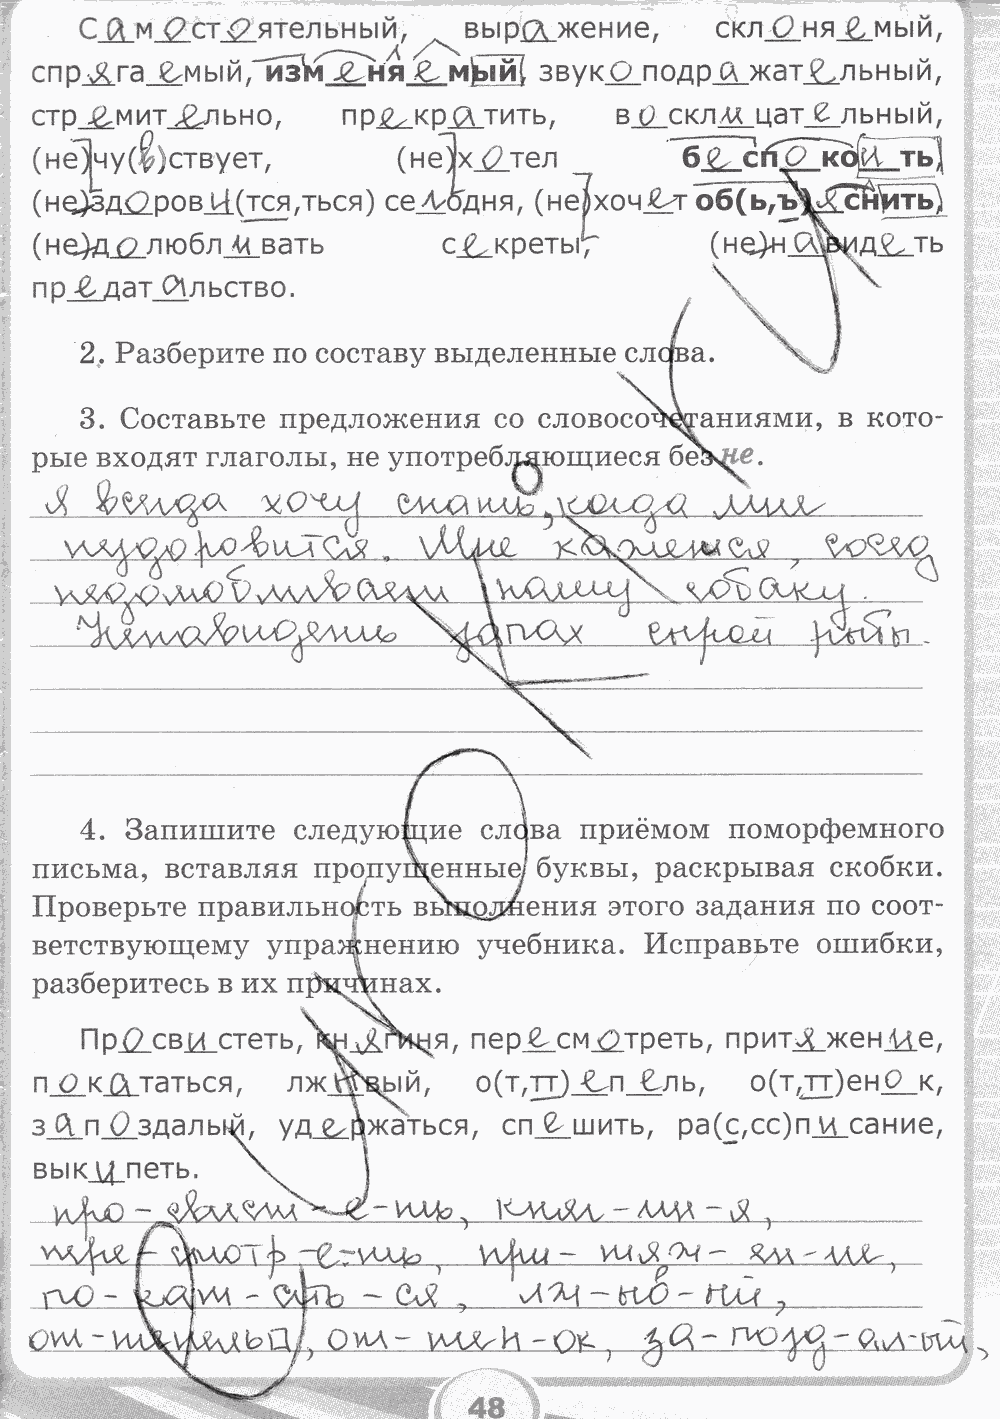 Самостоятельный, выражение, склоняемый,
спрягаемый, изменяемый, звукоподражательный,
стремительно, прекратить, восклицательный,
(не)чу(в)ствует, (не)хотел беспокоить,
(не)здорови(тся,ться) се мбодня, (не)хочет об(ь,ъ)яснить,
(не)долюбливать секреты, (не)навидеть
предательство.
2. Разберите по составу выделенные слова.
3. Составьте предложения со словосочетаниями, в кото-
рые входят глаголы, не употребляющиеся без не.
Я всегда хочу спать, когда мне
нездоровится. Мне кажется, сосед
недолюбливает нашу собаку.
Ненавидеть запах сырой рыбы.
4. Запишите следующие слова приёмом поморфемного
письма, вставляя пропущенные буквы, раскрывая скобки.
Проверьте правильность выполнения этого задания по соот-
ветствующему упражнению учебника. Исправьте ошибки,
разберитесь в их причинах.
Просвистеть, княгиня, пересмотреть, притяжение,
покататься, лживый, о(т,тт)епель, о(т,тт)енок,
запоздалый, удержаться, спешить, ра(с,сс)писание,
выкипеть.
про-свист-е-ть, княг-ин-я,
пере-смотр-е-ть, при-тяж-ен-ие,
по-кат-ать-ся,
от-тепель, от-тен-ок, за-позд-алый,
48